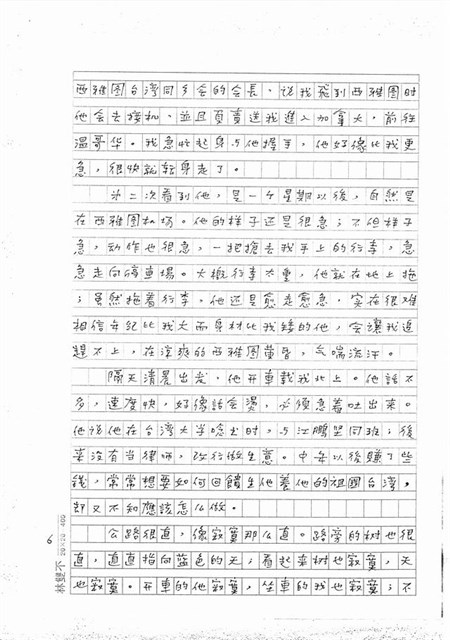 西雅圖台灣同鄉會的會長，說我飛到西雅圖时
他会去接机，並且負責送我進入加拿大，前往
溫哥华。我急忙起身与他握手，他好像比我更
急，很快就轉身走了。
　　第二次看到他，是一个星期以後，自然是
在西雅圖机场。他的样子还是很急；不但样子
急，动作也很急，一把搶去我手上的行李，急
急走向停車場。大概行李太重，他就在地上拖
；虽然拖着行李，他还是愈走愈急，实在很难
相信年纪比我大而身材比我矮的他，会讓我追
趕不上，在涼爽的西雅圖黃昏，气喘流汗。
　　隔天清晨出发，他开車載我北上。他話不
多，速度快，好像話会燙，必須急着吐出来。
他说他在台湾大学唸书时，与江鵬堅同班；後
来没有当律师，改行做生意。中年以後賺了些
錢，常常想要如何回饋生他養他的祖國台湾，
却又不知應該怎么做。
　　公路很直，像寂寞那么直。路旁的树也很
直，直直指向蓝色的天；看起来树也寂寞，天
也寂寞。开車的他寂寞，坐車的我也寂寞；不
林雙不 20×20=400